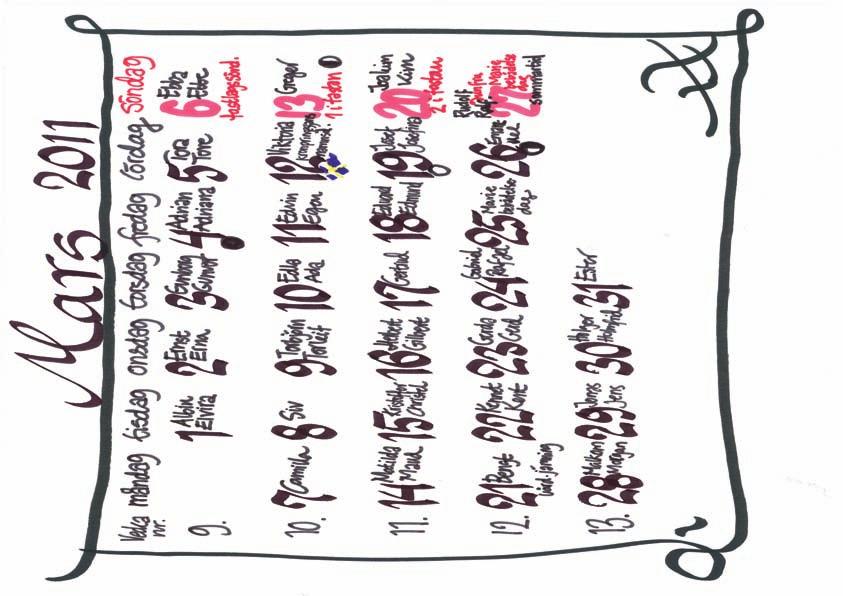 Mars 2011
Vecka nr. måndag tisdag onsdag torsdag fredag lördag söndag
9. 1 Albin Elvira 2 Ernst Erna 3 Gunborg Gunvor 4 Adrian Adriana 5 Tora Tove 6 Ebba Ebbe
fastlagssönd.
10. 7 Camilla 8 Siv 9 Torbjörn Torleif 10 Edla Ada 11 Edvin Egon 12 Viktoria 13 Greger
1 i fastan
11. 14 Matilda Maud 15 Kristoffer Christel 16 Herbert Gilbert 17 Gertrud 18 Edvard Edmund 19 Josef Josefina 20 Joakim Kim
2 i fastan
12. 21 Bengt 22 Kennet Kent 23 Gerda Gerd 24 Gabriel Rafael 25 Marie bebådelse dag 26 Emanuel 27 Rudolf Ralf
vård.jämning
Jungfru Marie bebådelse dag
sommartid
13. 28 Malkolm Morgan 29 Jonas Jens 30 Holger Holmfrid 31 Ester